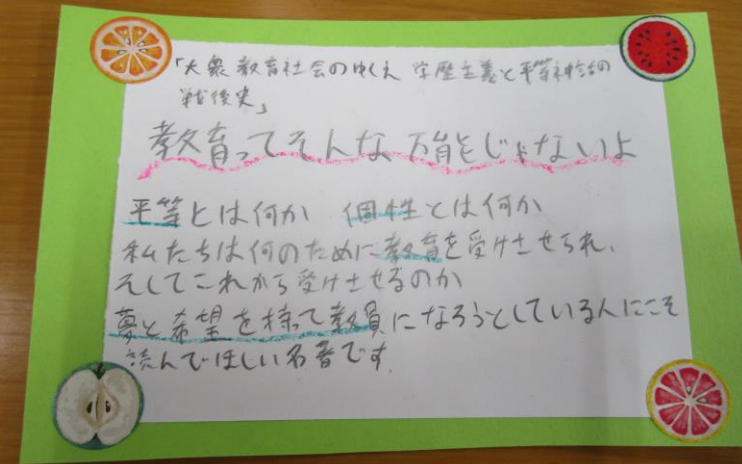 「大衆教育社会のゆくえ 学歴主義と平等神話の
戦後史」
教育ってそんな万能じゃないよ
平等とは何か 個性とは何か
私たちは何のために教育を受けさせられ、
そしてこれから受けさせるのか
夢と希望を持って教員になろうとしている人にこそ
読んでほしい名著です.